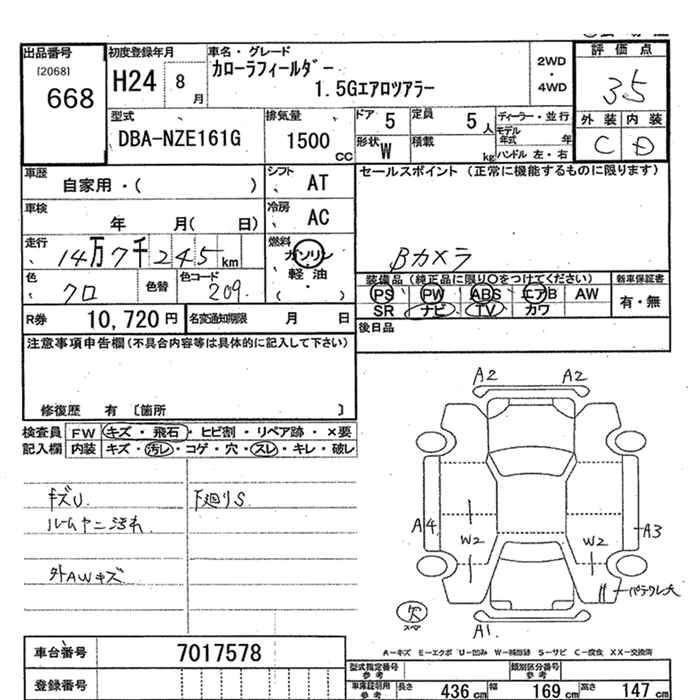 出品番号
[2068]
668
初度登録年月
H24 8 月
車名・グレード
カローラフィールダー
1.5Gエアロツアラー
2WD
・
4WD
評価点
3.5
外装 内装
C D
型式
DBA-NZE161G
排気量
1500 CC
ドア 5
定員 5 人
形状 W
積載 kg
ディーラー・並行
モデル年式 年
ハンドル 左・右
車歴
自家用・( )
シフト
AT
車検
年 月( 日)
冷房
AC
走行
14万7千245km
燃料
ガソリン
・
軽油
( )
色
クロ
色替
色コード
209
R券 10,720 円
名変通知期限 月 日
セールスポイント (正常に機能するものに限ります)
Bカメラ
装備品 (純正品に限り○をつけてください)
PS PW ABS エアB AW
SR ナビ TV カワ
新車保証書
有・無
後日品
注意事項申告欄(不具合内容等は具体的に記入して下さい)
修復歴 有 [箇所 ]
検査員
記入欄
FW キズ・飛石・ヒビ割・リペア跡・×要
内装 キズ・汚レ・コゲ・穴・スレ・キレ・破レ
キズU
ルームヤニ汚れ
外AWキズ
下廻りS
A2 A2
A4 A3
W2 W2
欠
スペア
A1
A-キズ E-エクボ U-凹み W-補修跡 S-サビ C-腐食 XX-交換済
車台番号 7017578
登録番号
型式指定番号
参考
類別区分番号
参考
車庫証明用
参考
長さ 436 cm
幅 169 cm
高さ 147 cm